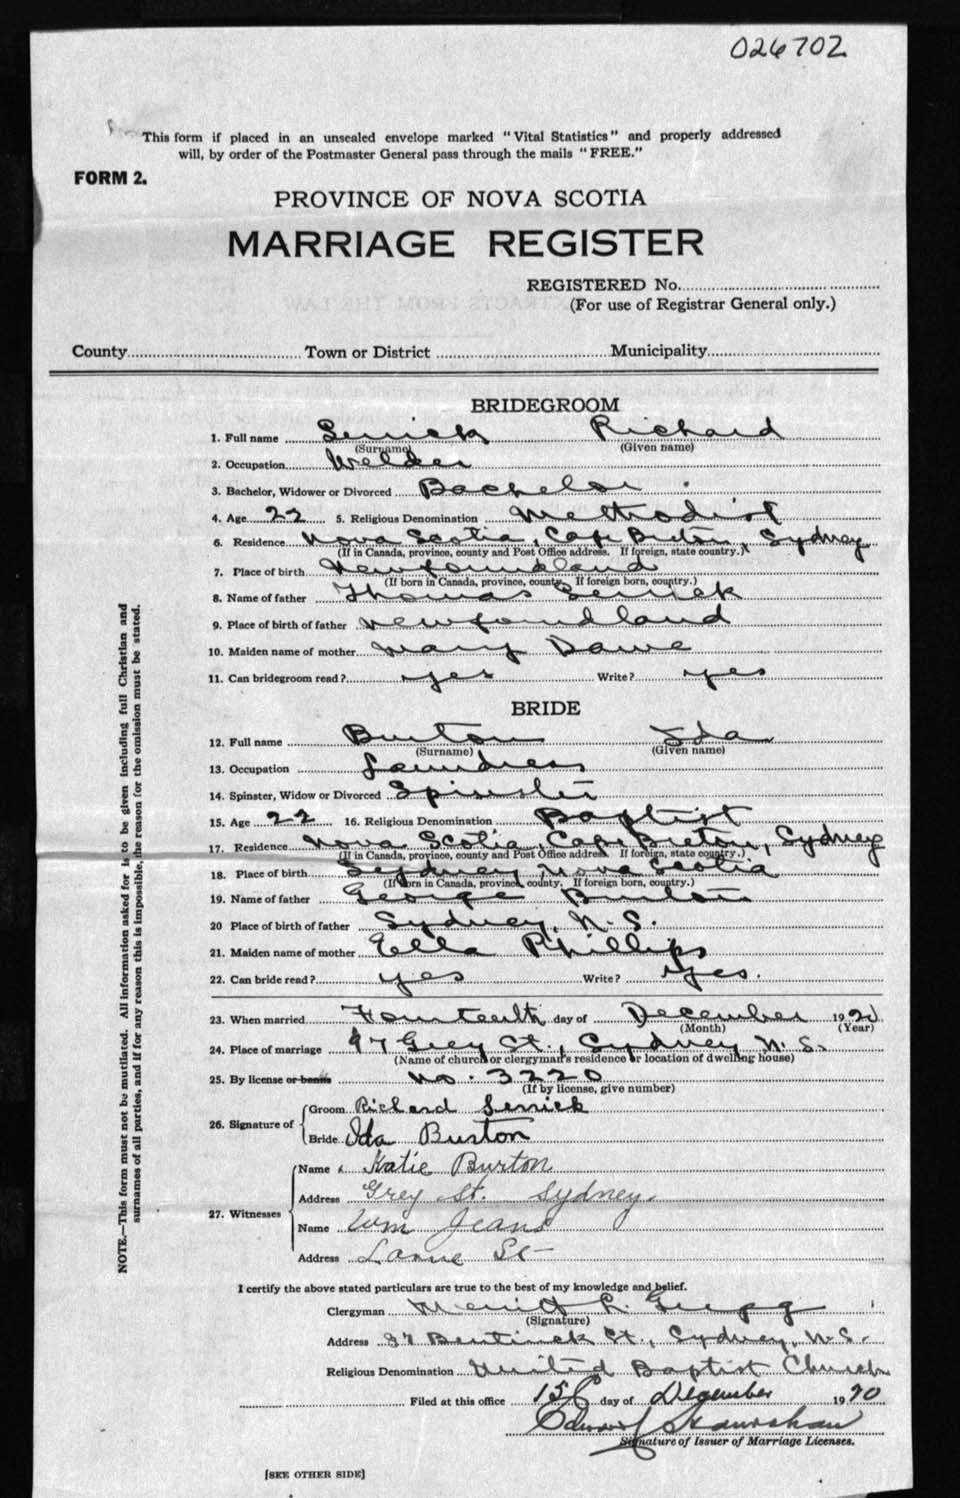 026702
This form if placed in an unsealed envelope marked "Vital Statistics" and properly addressed
will, by order of the Postmaster General pass through the mails "FREE."
FORM 2.
PROVINCE OF NOVA SCOTIA
MARRIAGE REGISTER
REGISTERED No.
(For use of Registrar General only.)
County Town or District Municipality
BRIDEGROOM
1. Full name Richard
(Surname) (Given name)
2. Occupation Welder
3. Bachelor, Widower or Divorced Bachelor
4. Age 22 5. Religious Denomination Methodist
6. Residence Nova Scotia, Cape Breton, Sydney
(If in Canada, province, county and Post Office address. If foreign, state country.)
7. Place of birth Newfoundland
(If born in Canada, province, county. If foreign born, country.)
8. Name of father Thomas
9. Place of birth of father Newfoundland
10. Maiden name of mother Mary Dawe
11. Can bridegroom read? yes Write? yes
BRIDE
12. Full name Burton Ida
(Surname) (Given name)
13. Occupation Laundress
14. Spinster, Widow or Divorced Spinster
15. Age 22 16. Religious Denomination Baptist
17. Residence Nova Scotia, Cape Breton, Sydney
(If in Canada, province, county and Post Office address. If foreign, state country.)
18. Place of birth Sydney, Nova Scotia
(If born in Canada, province county. If foreign born, country.)
19. Name of father George Burton
20 Place of birth of father Sydney, N.S.
21. Maiden name of mother Ella Phillips
22. Can bride read? yes Write? yes.
23. When married Fourteenth day of December 1920
(Month) (Year)
24. Place of marriage Grey St., Sydney N.S.
(Name of church or clergyman's residence or location of dwelling house)
25. By license or banns No. 3220
(If by license, give number)
26. Signature of
Groom Richard
Bride Ida Burton
27. Witnesses
Name Katie Burton
Address Grey St. Sydney
Name Wm Jeans
Address St
NOTE.—This form must not be mutilated. All information asked for is to be given including full Christian and
surnames of all parties, and if for any reason this is impossible, the reason for the omission must be stated.
I certify the above stated particulars are true to the best of my knowledge and belief.
Clergyman
(Signature)
Address 37 Bentinck St., Sydney, N.S.
Religious Denomination United Baptist Church
Filed at this office 15th day of December 1920
Signature of Issuer of Marriage Licenses.
[SEE OTHER SIDE]